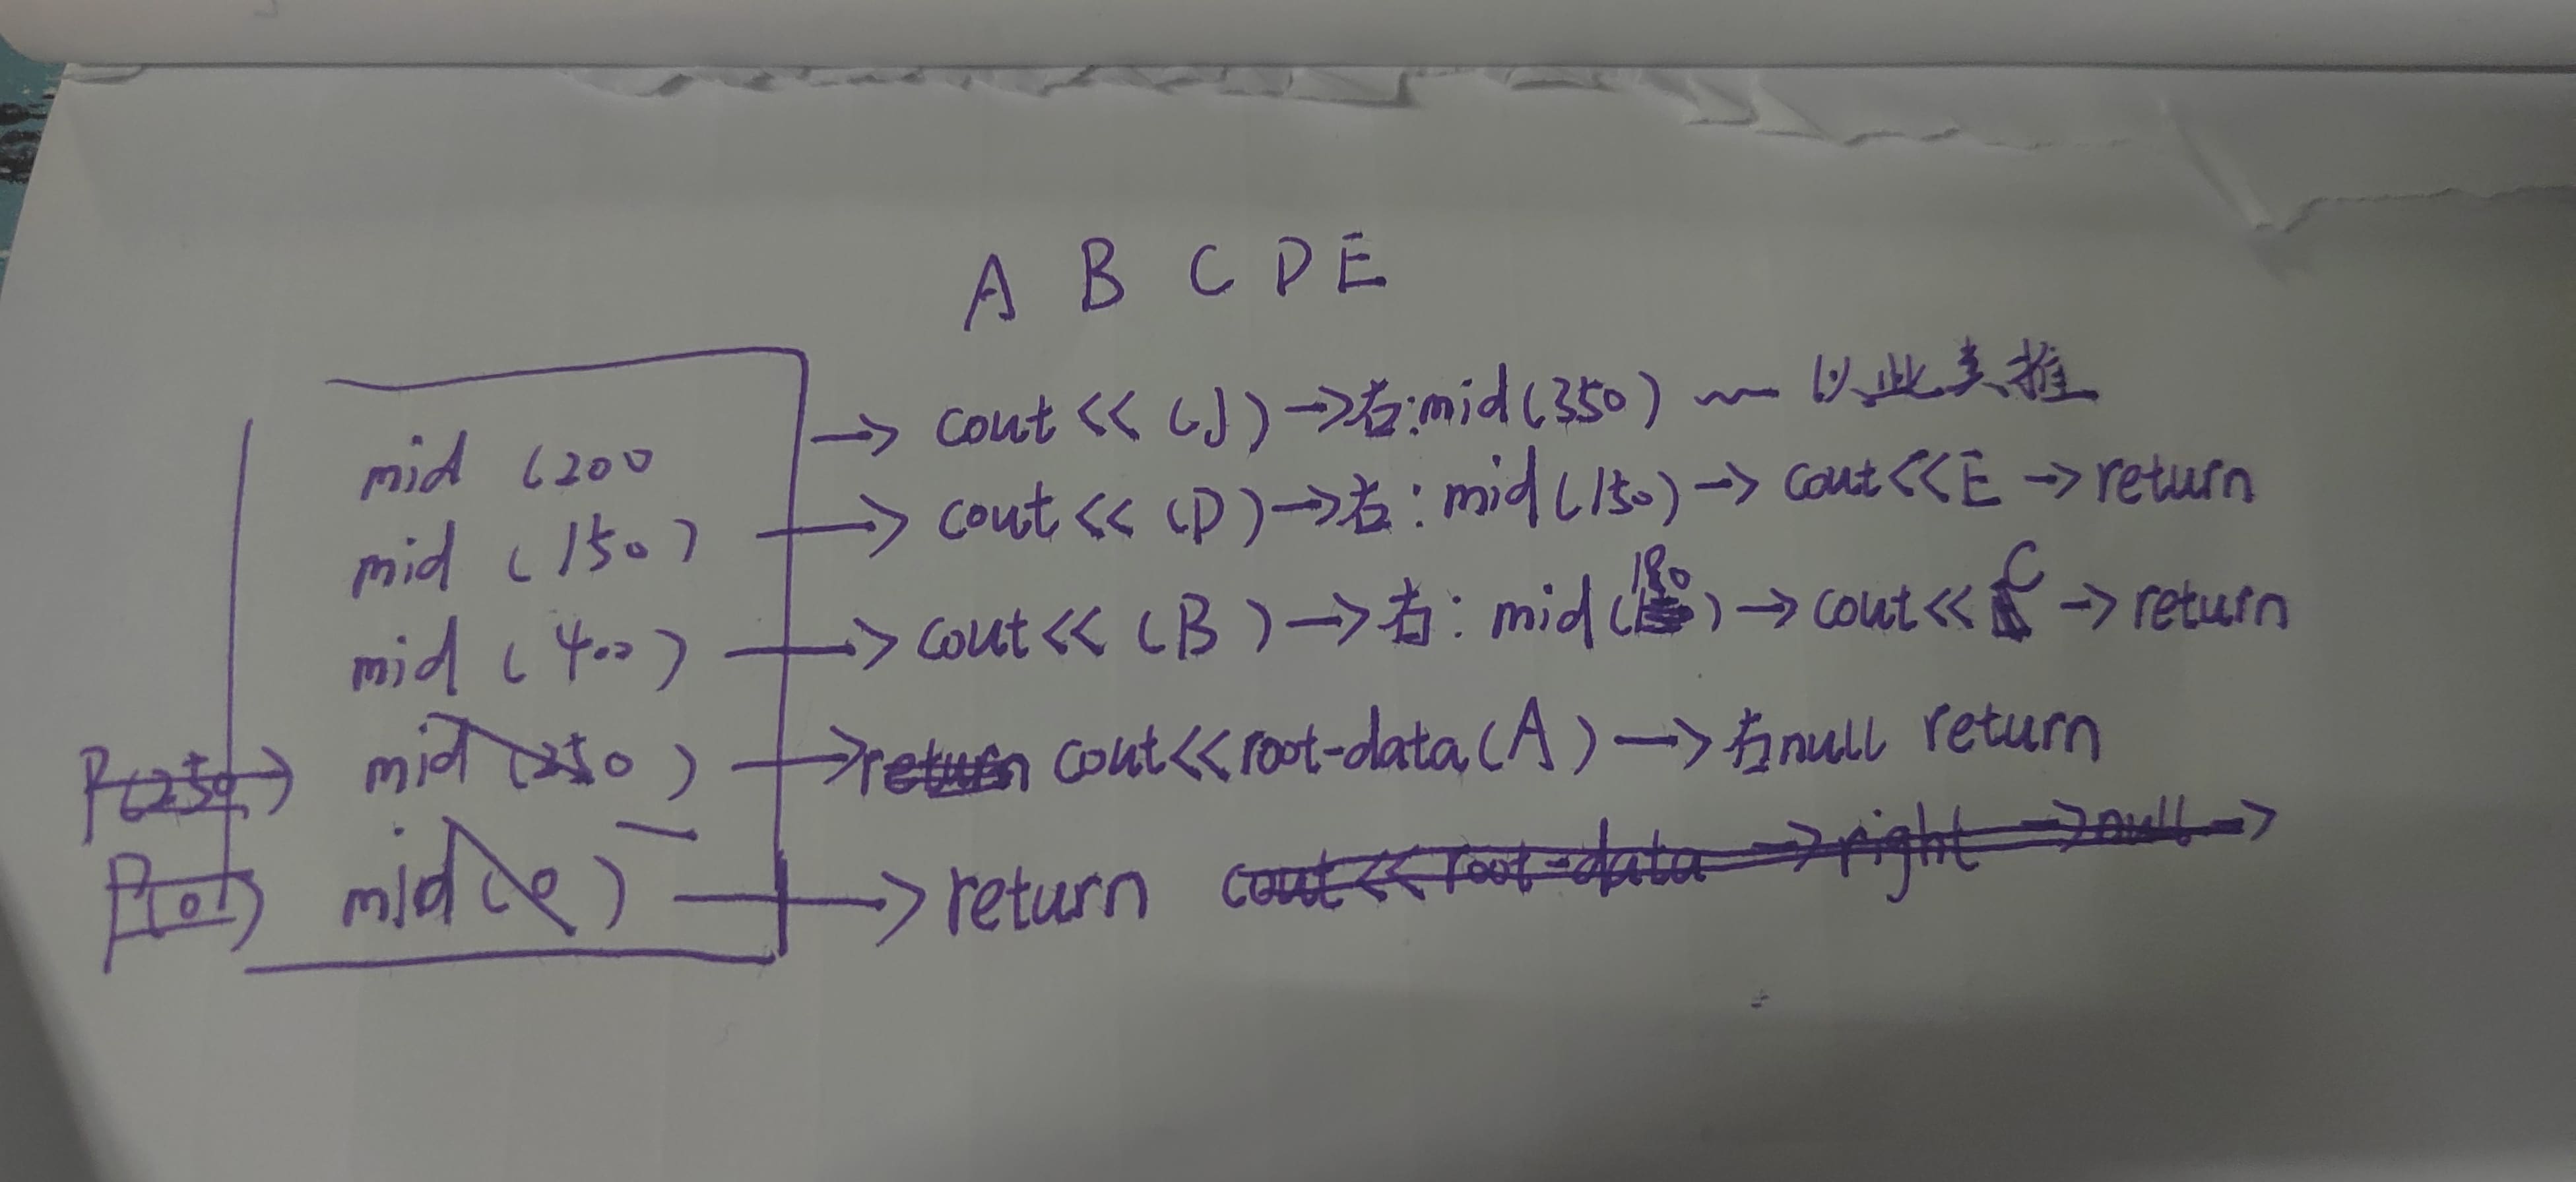 A B C D E
mid (200 → cout << (J) → 右:mid(350) ~ 以此类推
mid (150) → cout << (D) → 右: mid(150) → cout<<E → return
mid (400) → cout << (B) → 右: mid(180) → cout<< C → return
P(250) mid (250) → return cout<<root-data(A) → 右null return
P(0) mid(0) → return cout<<root-data → right → null →